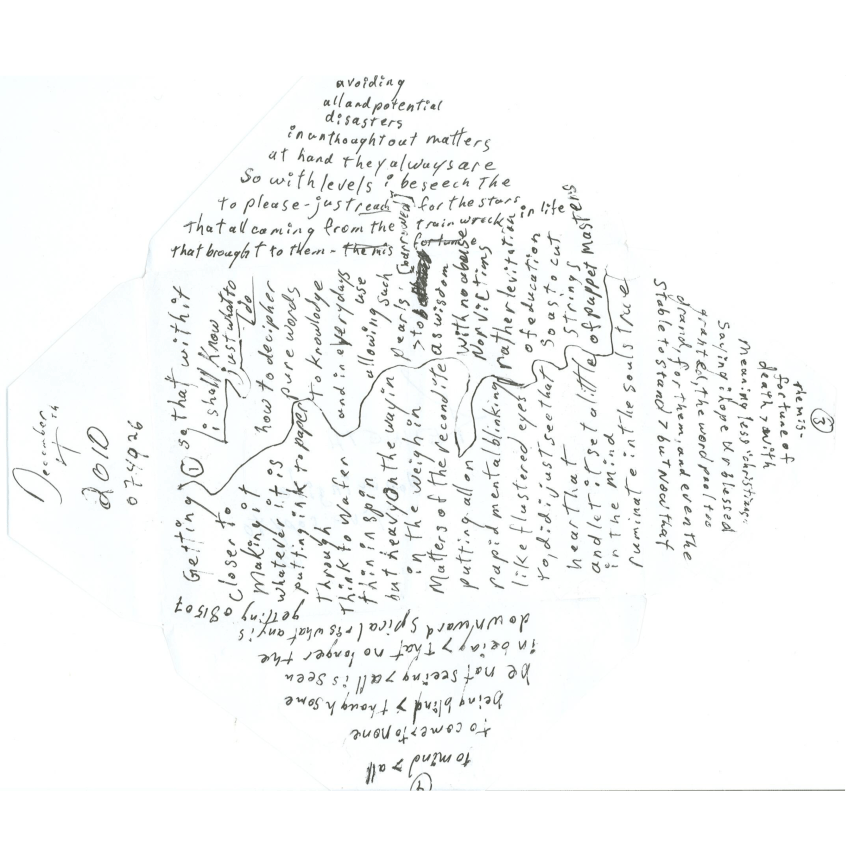 December
7th
2010
074926
Getting
closer to
Making it
whatever it is
putting ink to paper
Through
Think to wafer
thin in spin
but heavy on the way in
in the weigh in
Matters of the recondite
putting all on
rapid mental blinking
like flustered eyes
to, did i just see that
hear that
and let it set a little
in the mind
ruminate in the souls true
① so that with it
i shall know
just what to
do
how to decipher
pure words
to knowledge
and in everydays
use
allowing such
pearls,
> to be
as wisdom
with no abuse
Nor victims
rather levitation
of education
so as to cut
strings
of puppet masters
avoiding
all and potential
disasters
in unthought out matters
at hand they always are
So with levels i beseech The
to please - just reach for the stars
That all coming from the train wreck in life
that brought to them - the mis fortune
[barrowed]
③
demis-
fortune of
death > with
meaningless "christians"
Saying i hope U r blessed
granted, the word pool too
drained, for them, and even the
stable to stand > but now that
④
to mind > all
to come > to none
being blind > though some
be not seeing > all is seen
in being > That no longer the
downward spical r is what any is
getting 081507